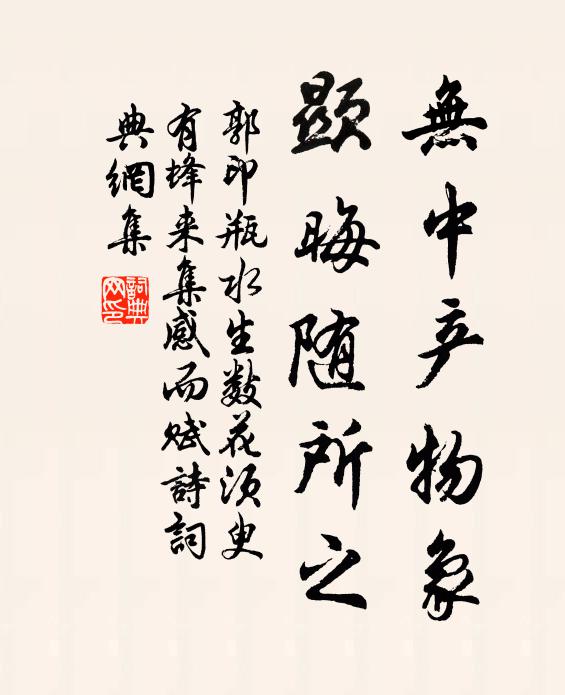 無中产物象
顯晦随所之
郭印瓶水生数花須臾
有蜂来集感而赋詩詞
典網集
詞典网印